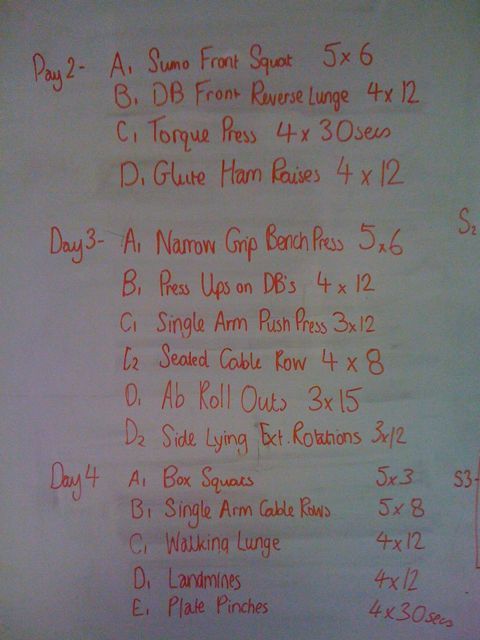 Day 2- A1 Sumo Front Squat 5x6
B1 DB Front Reverse Lunge 4x12
C1 Torque Press 4x30secs
D1 Glute Ham Raises 4x12
S2
Day 3- A1 Narrow Grip Bench Press 5x6
B1 Press Ups on DB's 4x12
C1 Single Arm Push Press 3x12
C2 Seated Cable Row 4x8
D1 Ab Roll Outs 3x15
D2 Side Lying Ext. Rotations 3x12
Day 4 A1 Box Squats 5x3 S3-
B1 Single Arm Cable Rows 5x8
C1 Walking Lunge 4x12
D1 Landmines 4x12
E1 Plate Pinches 4x30secs